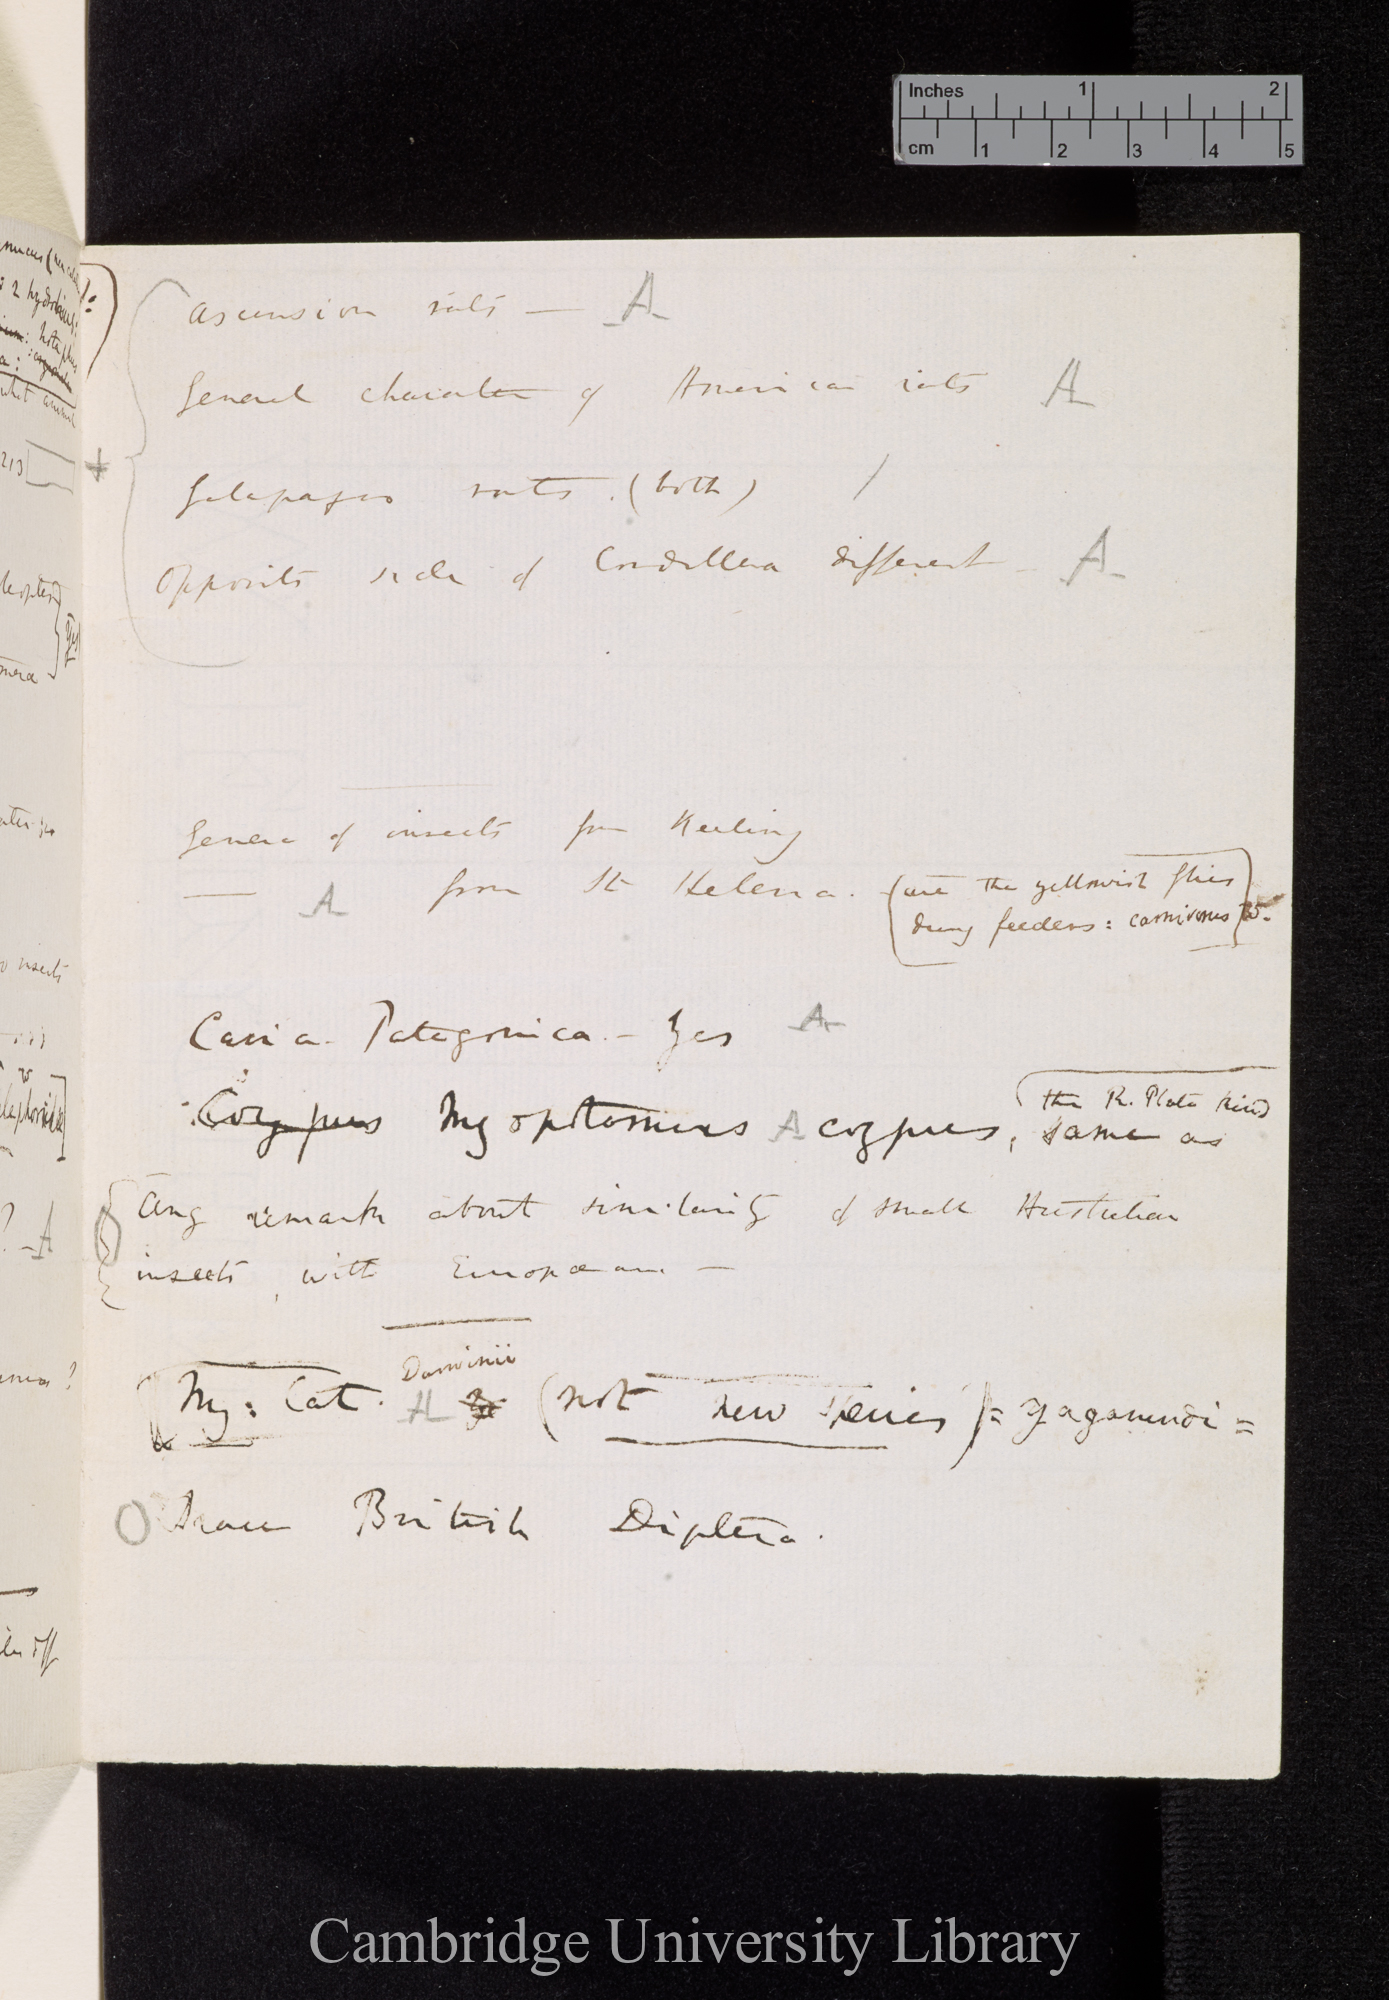 Inches 1 2
cm 1 2 3 4 5
Ascension rats — A
General character of American rats A
Galapagos rats. (both) /
Opposite side of Cordillera different — A
Genera of insects from Keeling
— A from St Helena. (are the yellowish flies
dung feeders: carnivorous W.
Cavia. Patagonica. — Yes A
Coypus Myopotamus A coypus, same as
the R. Plata kind
Any remark about similarity of small Australian
insects, with European —
Darwinii
My: Cat. A (not new species) = Yagouaroundi =
British Diptera.
Cambridge University Library